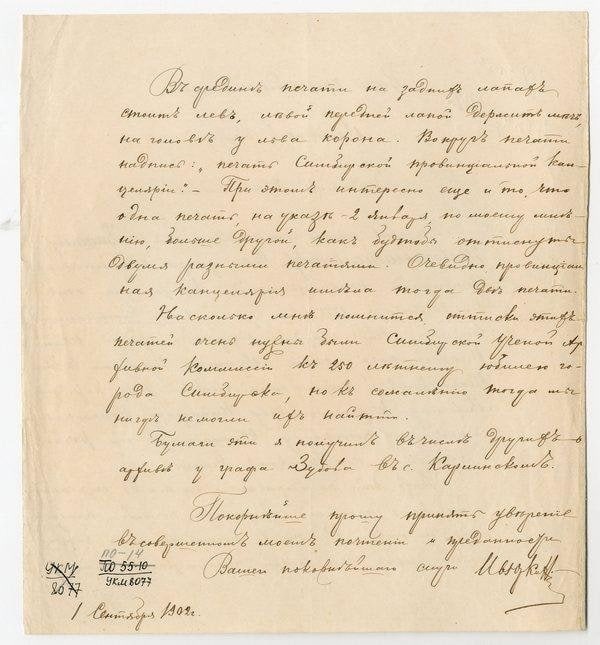 Въ срединѣ печати на заднихъ лапахъ
стоитъ левъ, лѣвой передней лапой держитъ мечъ,
на головѣ у льва корона. Вокругъ печати
надпись: „печать Симбирской провинціальной кан-
целяріи". – При этомъ интересно еще и то, что
одна печать, на указѣ – 2 Января, по моему мнѣ-
нію, больше другой, какъ будтобы оттиснуты
двумя разными печатями. Очевидно, провинціаль-
ная канцелярія имѣла тогда двѣ печати.
Насколько мнѣ помнится оттиски этихъ
печатей очень нужны были Симбирской Ученой Ар-
хивной Коммиссіи къ 250 лѣтнему юбилею го-
рода Симбирска, но къ сожалѣнію тогда мы
нигдѣ немогли ихъ найти.
Бумаги эти я получилъ въ числѣ другихъ о
архивѣ у графа Зубова въ с. Карлинскомъ.
Покорнѣйше прошу принять увѣреніе
въ совершенномъ моемъ почтеніи и преданности
Вашего покорнѣйшаго слуги
ПО-14
ПО 55-10
УКМ 8077
УКМ
8077
1 Сентября 1902 г.